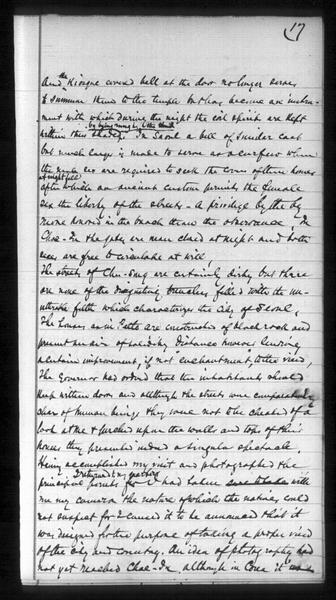 17
And the Kioigne covered bell at the door no longer serves
to summon them to the temple but has become an instru-
ment with which during the night the evil spirits are kept
by being rung by the
within this shades. In Saoul a bell of similar cast
but much larger is made to serve as a curfew when
the are required to seek the cover of their homes
at nightfall
after which an ancient custom permits the female
sex the liberty of the streets - a privilege by the by
more honored in the breach than the observance. In
Chae-In the gates are never closed at night and both
sexes are free to circulate at will,
The streets of Chu-sung are certainly dirty but there
are none of the filled with the un-
utterable filth which characterizes the city of Seoul,
The houses as in are constructed of black rock and
present an air of solidity distance however lending
a certain improvement, if not "enchantment, to the view,
The Governor had ordered that the inhabitants should
keep within doors and although the streets were comparatively
clear of human beings they were not to be cheated of a
look at me & perched upon the walls and tops of their
houses they presented indeed a singular spectacle.
Having accomplished my visit and photographed the
principal points for I had taken with
me my camera the nature of which the natives could
not suspect for I caused it to be announced that it
was designed for the purpose of taking a proper view
of the city and country. An idea of photography had
not yet reached Chae-In, although in Corea it